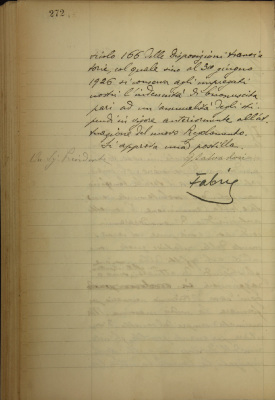 272
ticolo 166 delle disposizioni transi
torie, col quale sino al 30 giugno
1926 si conserva agli impiegati
nostri l'indennità di buonuscita
pari ad un'annualità degli sti
pendi in vigore anteriormente all'at
tuazione del nuovo Regolamento.
Si approva una postilla.
Il Presidente
Fabri